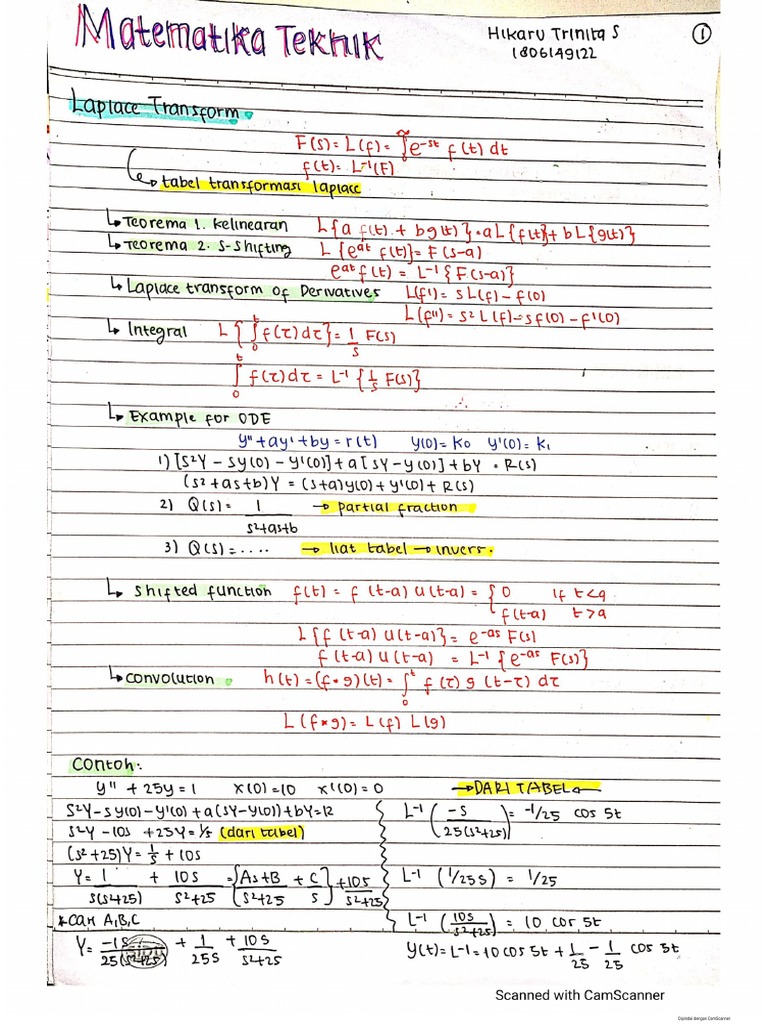 Matematika Teknik
Hikaru Trinita S
1806149122
1
Laplace Transform
F(s) = L(f) = ∫₀^∞ e^-st f(t) dt
f(t) = L^-1(F)
↳ tabel transformasi laplace
↳ Teorema 1. Kelinearan L{a f(t) + bg(t)} = aL{f(t)} + bL{g(t)}
↳ Teorema 2. S-shifting L{e^at f(t)} = F(s-a)
e^at f(t) = L^-1{F(s-a)}
↳ Laplace transform of Derivatives L(f') = sL(f) - f(0)
L(f'') = s² L(f) - sf(0) - f'(0)
↳ Integral L{∫₀^t f(τ)dτ} = 1/s F(s)
∫₀^t f(τ)dτ = L^-1{1/s F(s)}
↳ Example for ODE
y'' + ay' + by = r(t) y(0) = K₀ y'(0) = K₁
1) [s²Y - sy(0) - y'(0)] + a[sY - y(0)] + bY = R(s)
(s² + as + b)Y = (s+a)y(0) + y'(0) + R(s)
2) Q(s) = 1/(s²+as+b) → partial fraction
3) Q(s) = .... → liat tabel → invers.
↳ Shifted function f(t) = f(t-a) u(t-a) = { 0 if t<a
f(t-a) t>a
L{f(t-a) u(t-a)} = e^-as F(s)
f(t-a) u(t-a) = L^-1{e^-as F(s)}
↳ Convolution h(t) = (f*g)(t) = ∫₀^t f(τ) g(t-τ) dτ
L(f*g) = L(f) L(g)
Contoh:
y'' + 25y = 1 x(0) = 10 x'(0) = 0
s²Y - sy(0) - y'(0) + a(sY - y(0)) + bY = R
s²Y - 10s + 25Y = 1/s (dari tabel)
(s² + 25)Y = 1/s + 10s
Y = 1/(s(s+25)) + 10s/(s²+25) = [(As+B)/(s²+25) + C/s] + 10s/(s²+25)
*cari A,B,C
Y = -1s/(25(s²+25)) + 1/25s + 10s/(s²+25)
→ DARI TABEL
L^-1 (-s/(25(s²+25))) = -1/25 cos 5t
L^-1 (1/25s) = 1/25
L^-1 (10s/(s²+25)) = 10 cos 5t
y(t) = L^-1 = 10 cos 5t + 1/25 - 1/25 cos 5t
Scanned with CamScanner
Dipindai dengan CamScanner